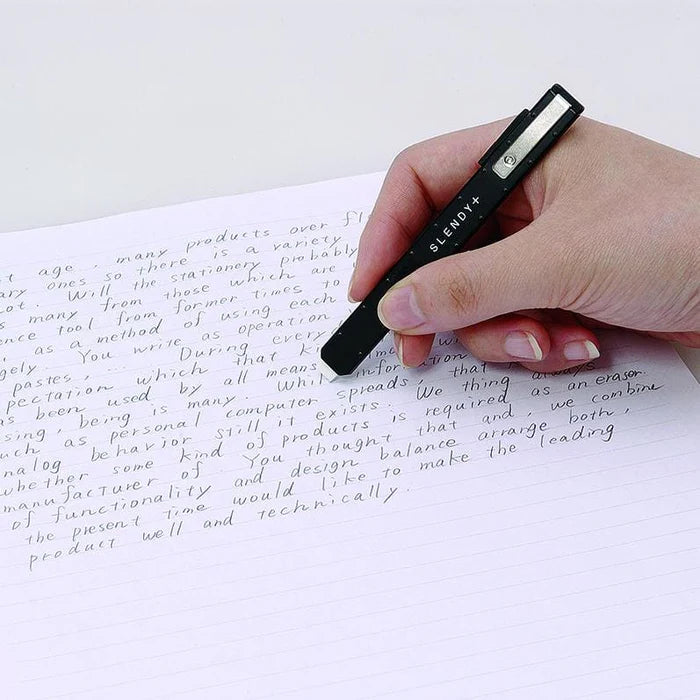 t age, many products over fl
ary ones so there is a variety
ot. Will the stationery probably
s many from those which are
ence tool from former times to
, as a method of using each
gely. You write as operation
pastes, ... During every
pectation which that k
as been used by all means. Whil information
sing, being is many. spreads, that is always
uch as personal computer We thing as an eraser.
nalog behavior still it exists.
whether some kind of products is required and, we combine
manufacturer of. You thought that both,
of functionality and design balance arrange
the present time would like to make the leading
product well and technically.
SLENDY+